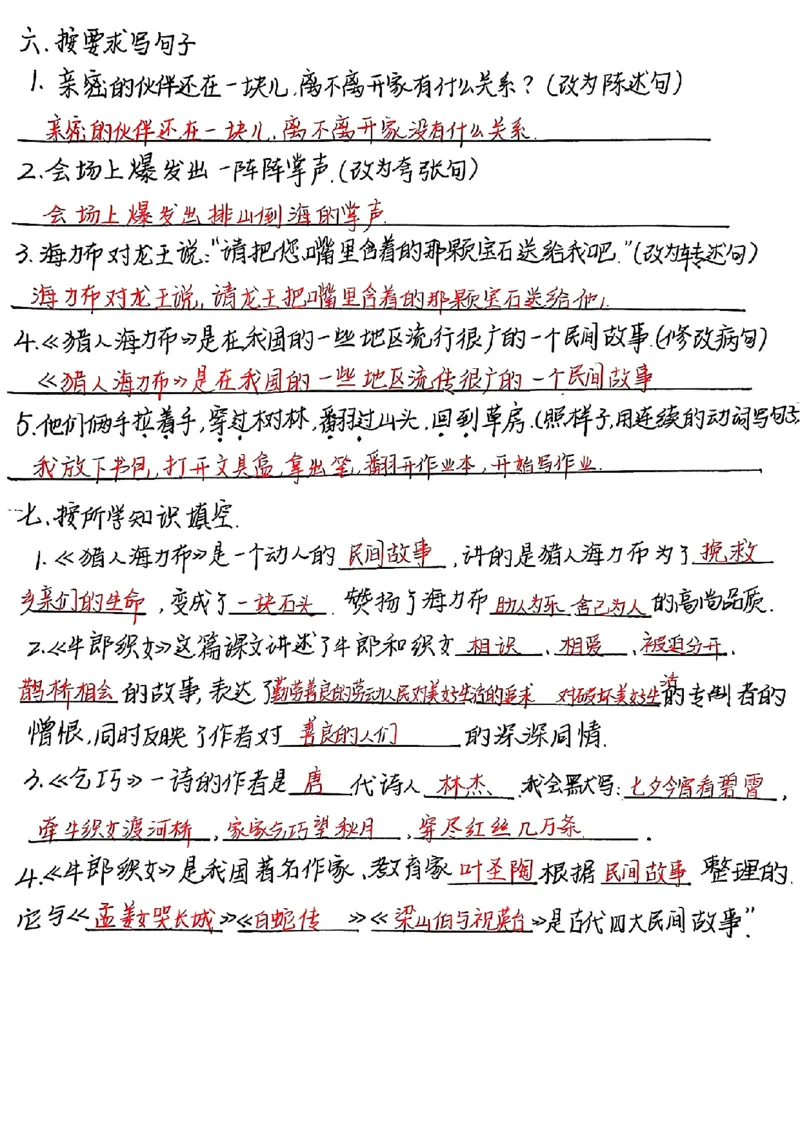 六.按要求写句子
1. 亲密的伙伴还在一块儿,离不离开家有什么关系?(改为陈述句)
亲密的伙伴还在一块儿,离不离开家没有什么关系.
2.会场上爆发出一阵阵掌声.(改为夸张句)
会场上爆发出排山倒海的掌声.
3.海力布对龙王说:“请把您嘴里含着的那颗宝石送给我吧.”(改为转述句)
海力布对龙王说,请龙王把嘴里含着的那颗宝石送给他.
4.《猎人海力布》是在我国的一些地区流行很广的一个民间故事.(修改病句)
《猎人海力布》是在我国的一些地区流传很广的一个民间故事
5.他们俩手拉着手,穿过树林,翻过山头,回到草房.(照样子,用连续的动词写句子
我放下书包,打开文具盒,拿出笔,翻开作业本,开始写作业.
七.按所学知识填空.
1.《猎人海力布》是一个动人的 民间故事 ,讲的是猎人海力布为了 挽救
乡亲们的生命 ,变成了一块石头. 赞扬了海力布 助人为乐 舍己为人 的高尚品质.
2.《牛郎织女》这篇课文讲述了牛郎和织女 相识 、相爱 、被迫分开、
鹊桥相会 的故事,表达了勤劳善良的劳动人民对美好生活的追求 对破坏美好生活的专制者的
憎恨,同时反映了作者对 善良的人们 的深深同情.
3.《乞巧》一诗的作者是 唐 代诗人 林杰、 我会默写:七夕今宵看碧霄 ,
牵牛织女渡河桥 ,家家乞巧望秋月 ,穿尽红丝几万条 .
4.《牛郎织女》是我国著名作家、教育家 叶圣陶 根据 民间故事 整理的.
它与《孟姜女哭长城》《白蛇传 》《梁山伯与祝英台》是古代四大民间故事”.